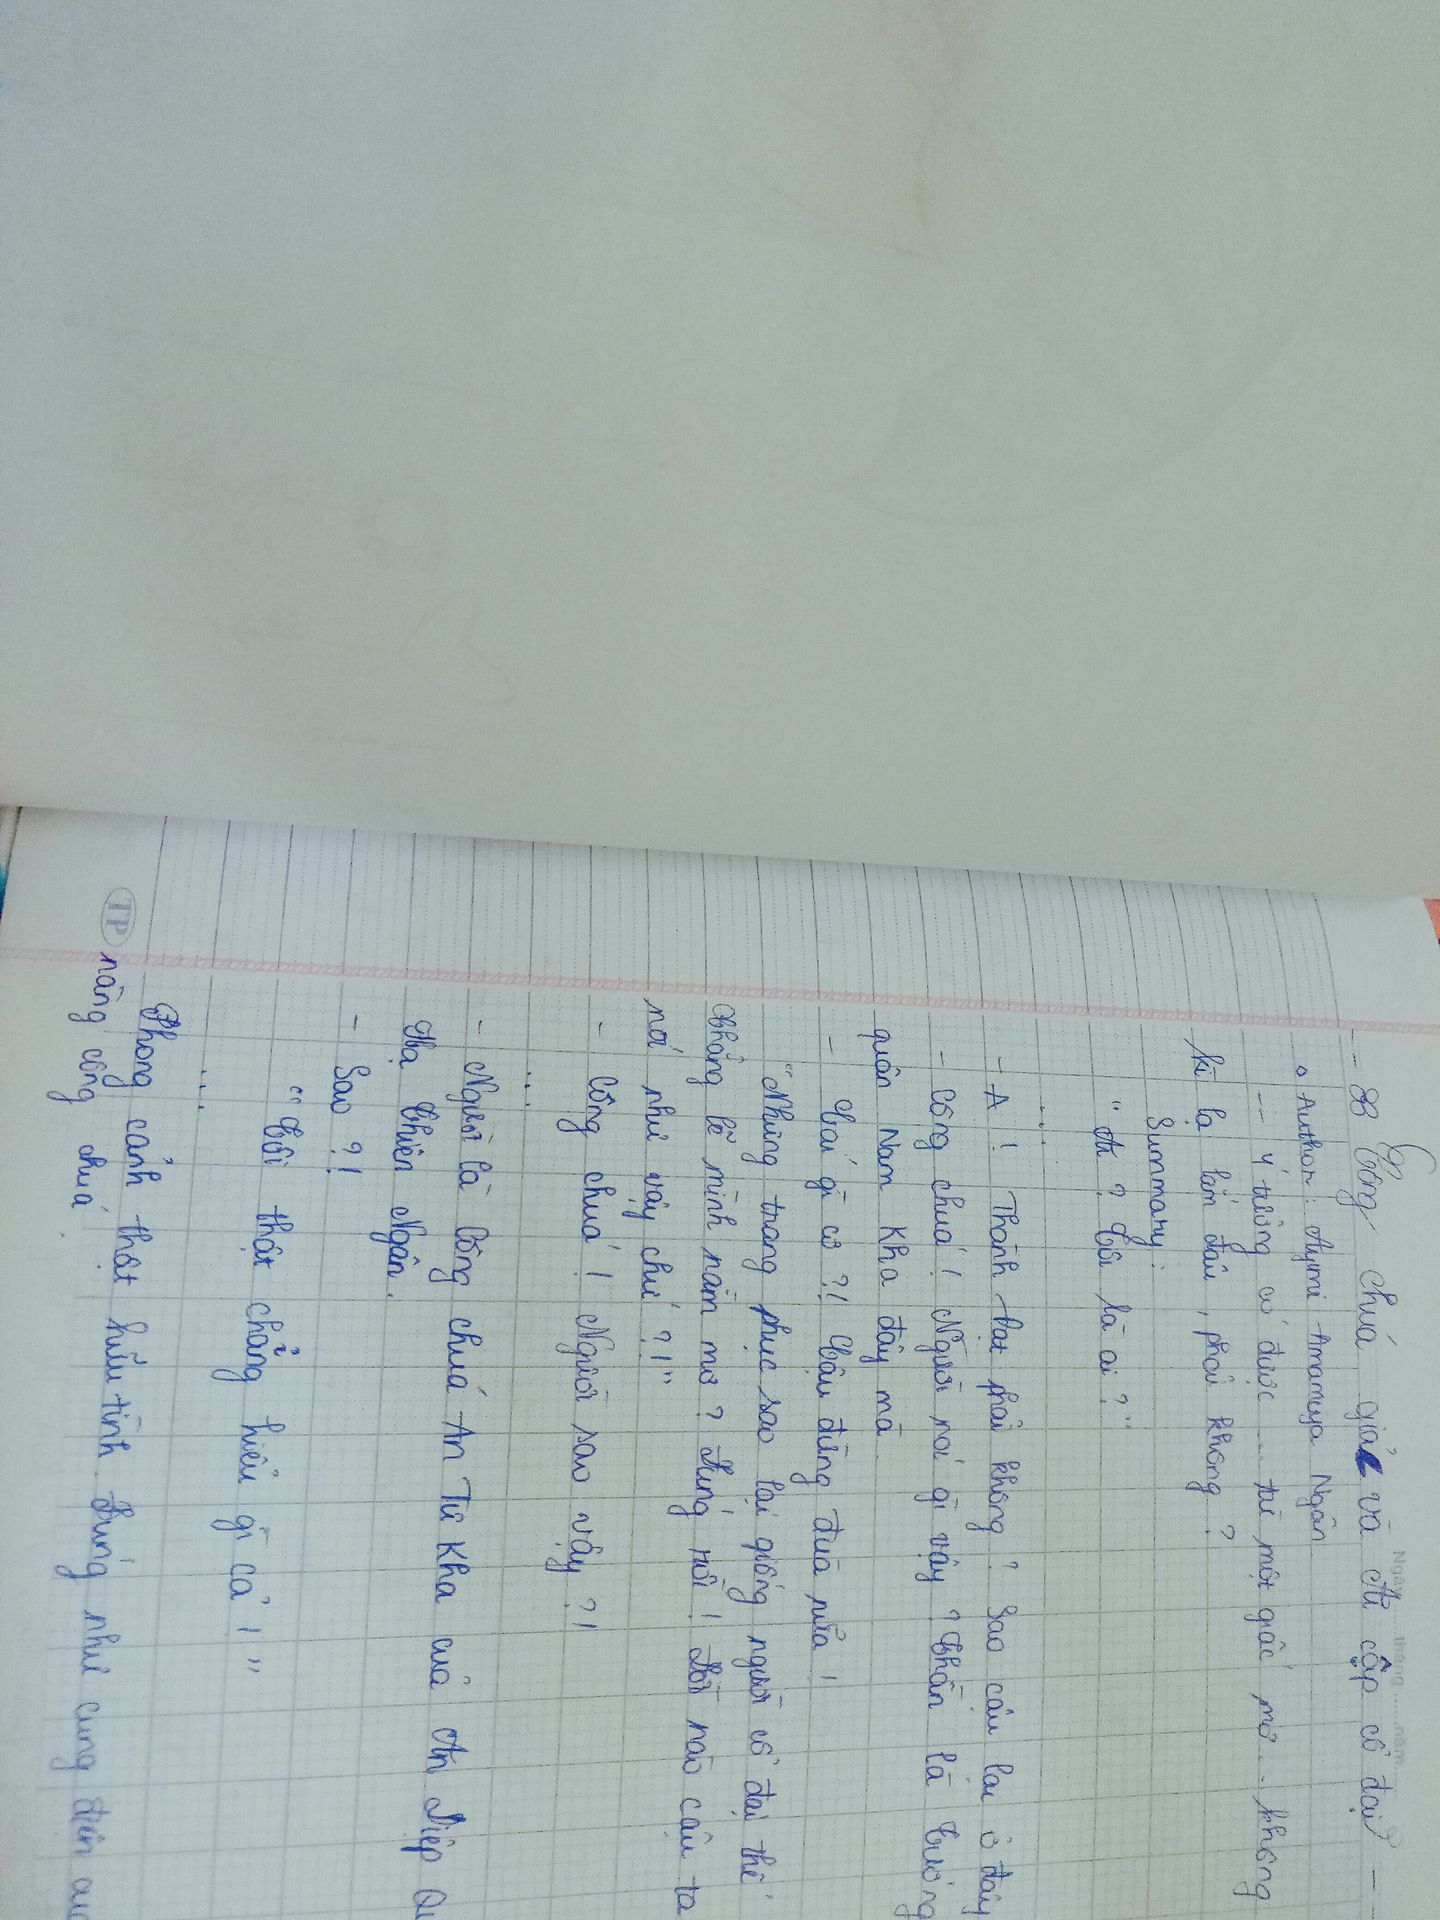 Ngày......tháng......năm......
Công chúa giả và Ai cập cổ đại
Author: Ayami Amamya Ngân
-- Ý tưởng có được ... từ một giấc mơ. không
kì lạ lắm đâu, phải không?
Summary:
"A? Tôi là ai?"
...
- A! Thành Đạt phải không? Sao cậu lại ở đây
- Công chúa! Người nói gì vậy? Thần là tướng
quân Nam Kha đây mà.
- Cái gì cơ?! Cậu đừng đùa nữa!
"Những trang phục sao lại giống người cổ đại thế
Chẳng lẽ mình nằm mơ? Đúng rồi! Đời nào cậu ta
nói như vậy chứ?!"
- Công chúa! Người sao vậy?!
...
- Người là công chúa An Tử Kha của An Diệp
Hạ Thiên Ngân.
- Sao?!
"Tôi thật chẳng hiểu gì cả!"
...
Phong cảnh thật hữu tình. Đúng như cung điện của
nàng công chúa.
TP